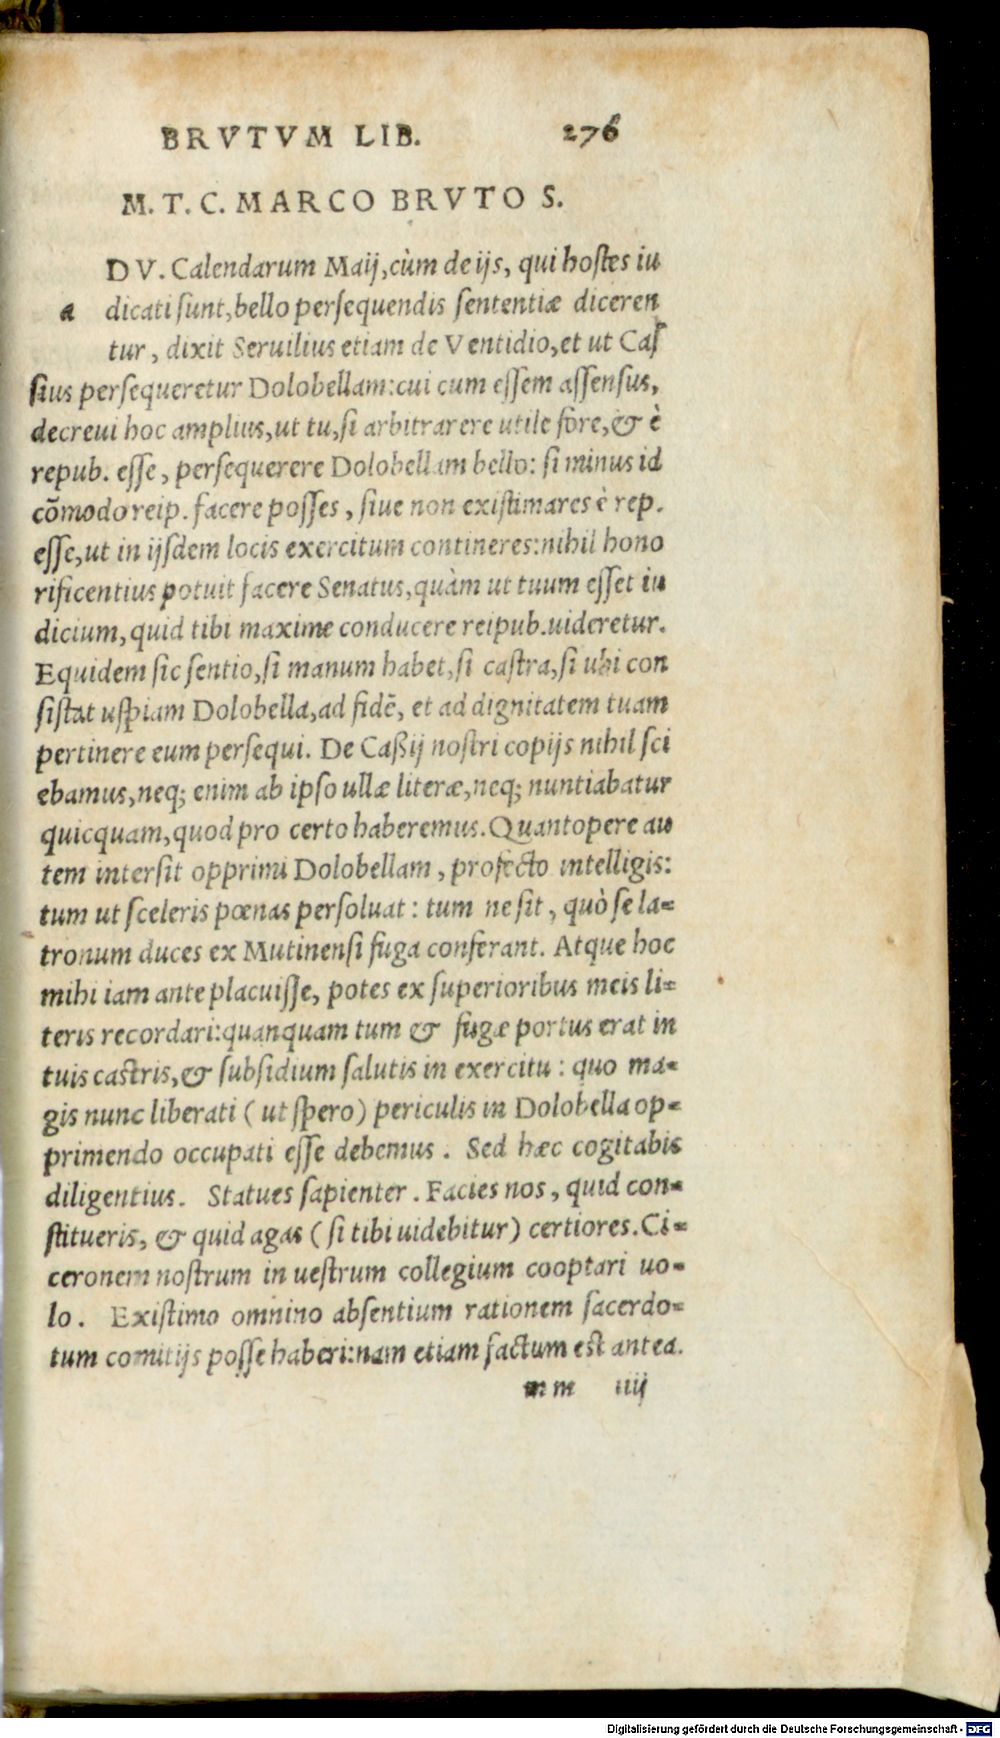 BRVTVM LIB. 276
M. T. C. MARCO BRVTO S.
D V. Calendarum Maij, cùm de ijs, qui hostes iu
a dicati sunt, bello persequendis sententiæ diceren
tur, dixit Seruilius etiam de Ventidio, et ut Cas
sius persequeretur Dolobellam: cui cum essem assensus,
decreui hoc amplius, ut tu, si arbitrarere utile fore, & è
repub. esse, persequerere Dolobellam bello: si minus id
cōmodo reip. facere posses, siue non existimares è rep.
esse, ut in ijsdem locis exercitum contineres: nihil hono
rificentius potuit facere Senatus, quàm ut tuum esset iu
dicium, quid tibi maxime conducere reipub. uideretur.
Equidem sic sentio, si manum habet, si castra, si ubi con
sistat uspiam Dolobella, ad fidē, et ad dignitatem tuam
pertinere eum persequi. De Caßij nostri copijs nihil sci
ebamus, neq; enim ab ipso ullæ literæ, neq; nuntiabatur
quicquam, quod pro certo haberemus. Quantopere au
tem intersit opprimi Dolobellam, profecto intelligis:
tum ut sceleris pœnas persoluat: tum ne sit, quò se la=
tronum duces ex Mutinensi fuga conferant. Atque hoc
mihi iam ante placuisse, potes ex superioribus meis li=
teris recordari: quanquam tum & fugæ portus erat in
tuis castris, & subsidium salutis in exercitu: quo ma=
gis nunc liberati (ut spero) periculis in Dolobella op=
primendo occupati esse debemus. Sed hæc cogitabis
diligentius. Statues sapienter. Facies nos, quid con=
stitueris, & quid agas (si tibi uidebitur) certiores. Ci=
ceronem nostrum in uestrum collegium cooptari uo=
lo. Existimo omnino absentium rationem sacerdo=
tum comitijs posse haberi: nam etiam factum est antea.
mm iiij
Digitalisierung gefördert durch die Deutsche Forschungsgemeinschaft - DFG